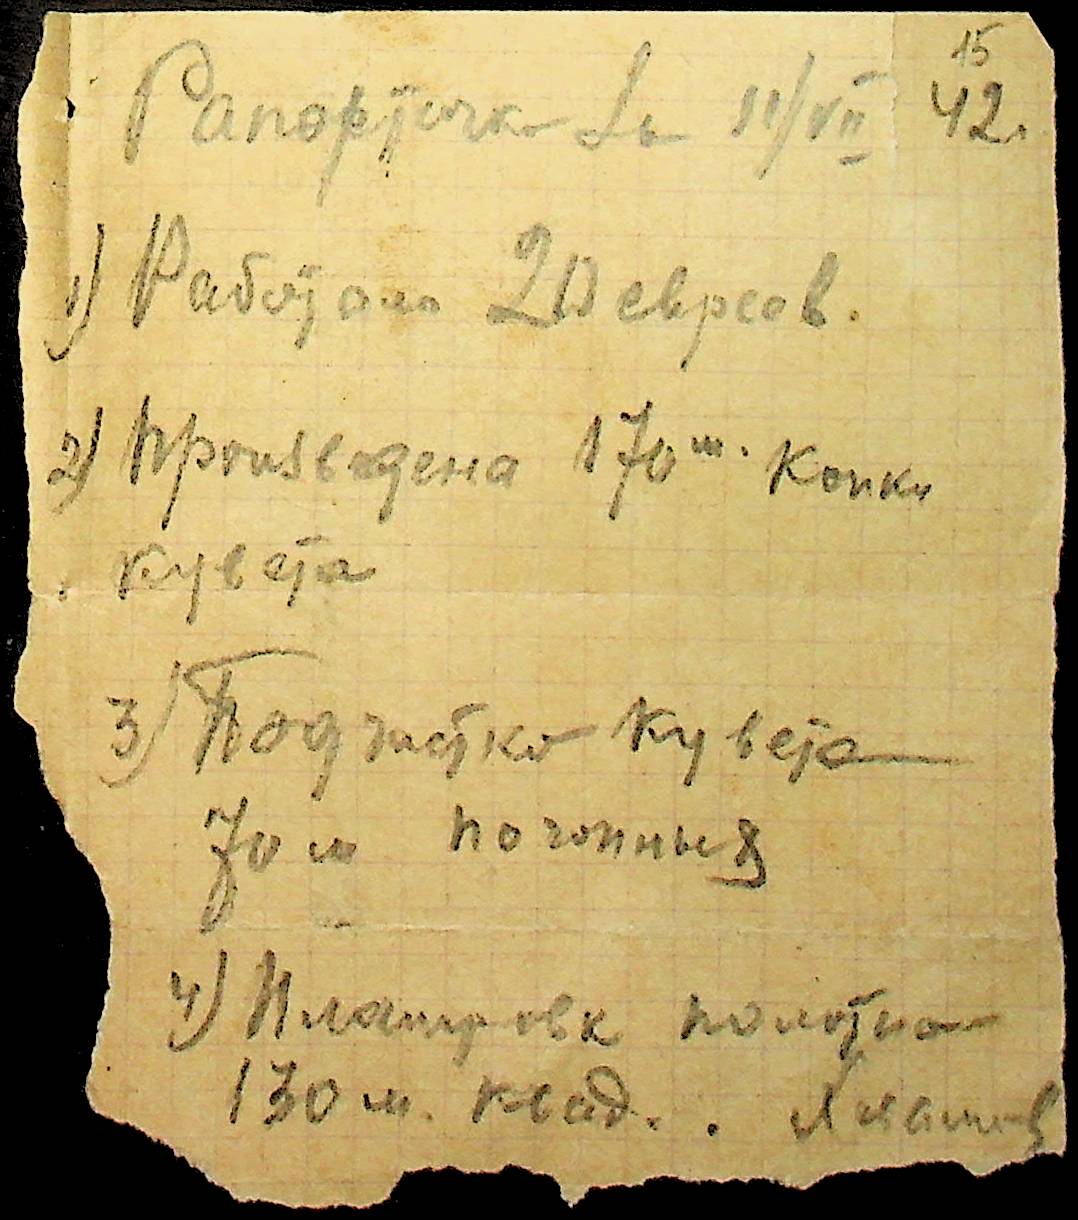 15
Рапортичка За 11/VII 42.
1) Работало 20 евреев.
2) Произведена 170 м. копки
кувета
3) Подчистка кувета
70 м погонных
4) Планировк полотна
130 м. квад.